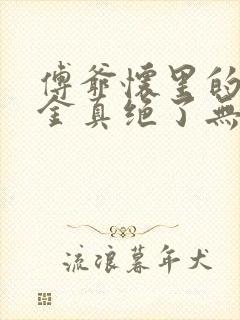 傅爷怀里的
金真绝了無
流浪暮年犬